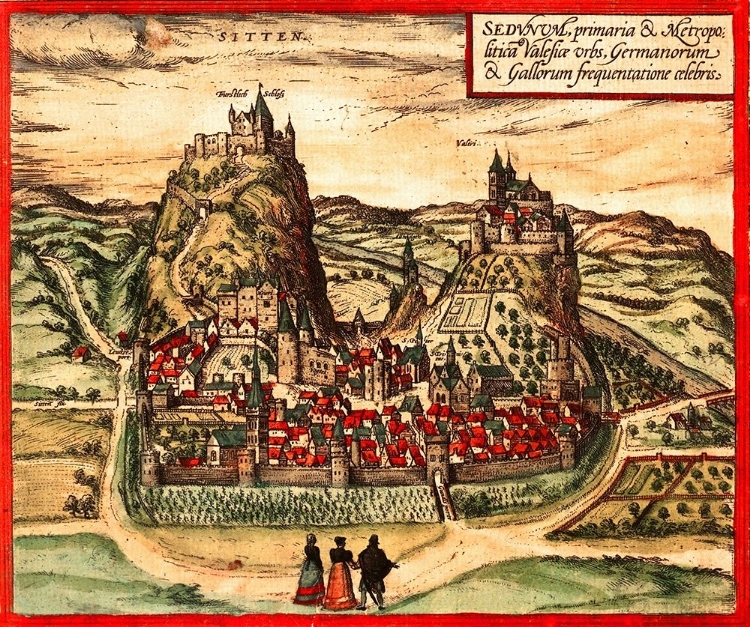 SITTEN.
SEDVNVM, primaria & Metropo:
litica Valesiæ vrbs, Germanorum
& Gallorum frequentatione celebris.
Furstlich Schloss
Valeri